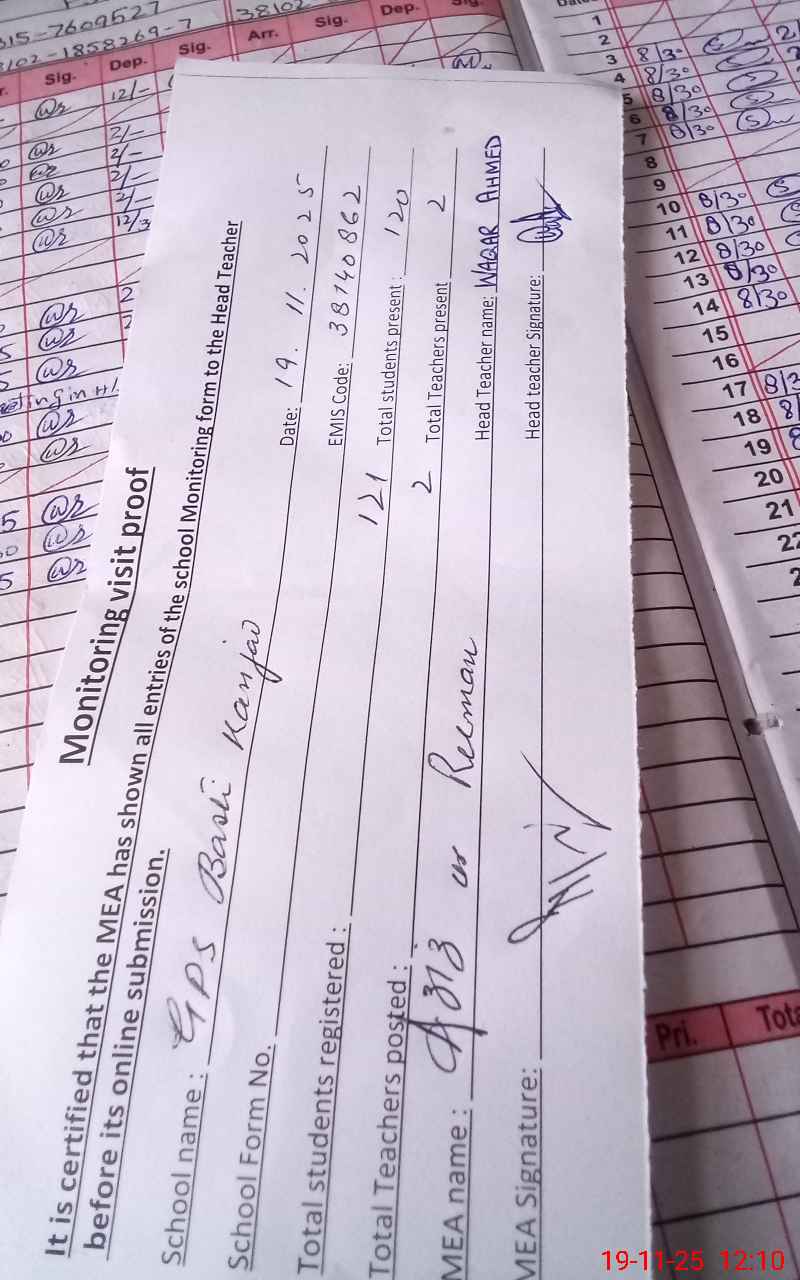 Monitoring visit proof
It is certified that the MEA has shown all entries of the school Monitoring form to the Head Teacher
before its online submission.
School name : GPS Basti Kanjao Date: 19.11.2025
School Form No. EMIS Code: 38140862
Total students registered : 121 Total students present : 120
Total Teachers posted : 2 Total Teachers present 2
MEA name : 313 ur Rehman Head Teacher name: WAQAR AHMED
MEA Signature: Head teacher Signature:
315-7609527
38102-1858269-7
38102
Sig. Dep. Sig. Arr. Sig. Dep. Sig.
12/-
2/-
2/-
2/-
2/-
1
2
3 8/30
4 8/30
5 8/30
6 8/30
7 8/30
8
9
10 8/30
11 8/30
12 8/30
13 8/30
14 8/30
15
16
17
18
19
20
21
22
Pri. Tota
19-11-25 12:10